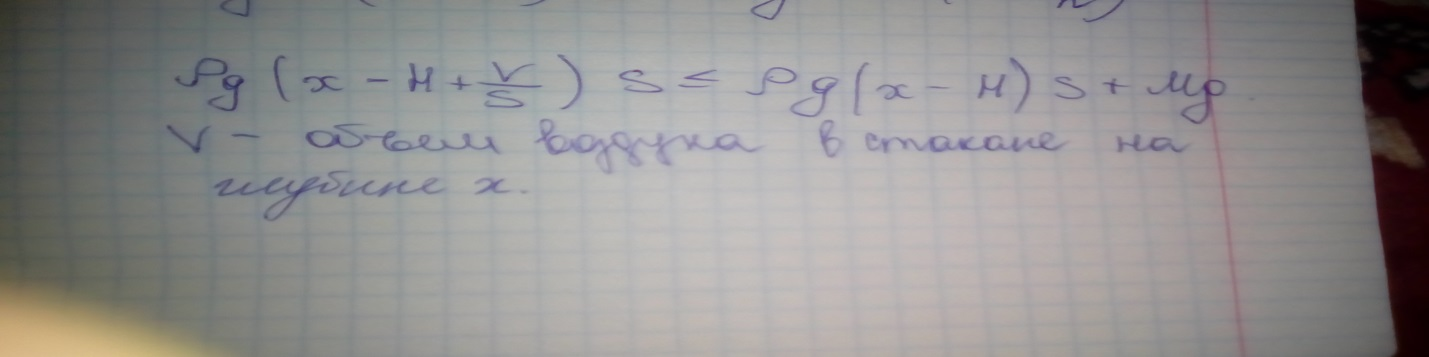 ρg(x - H + V/S) S ≤ ρg(x - H) S + Mg
V - объем воздуха в стакане на
глубине x.